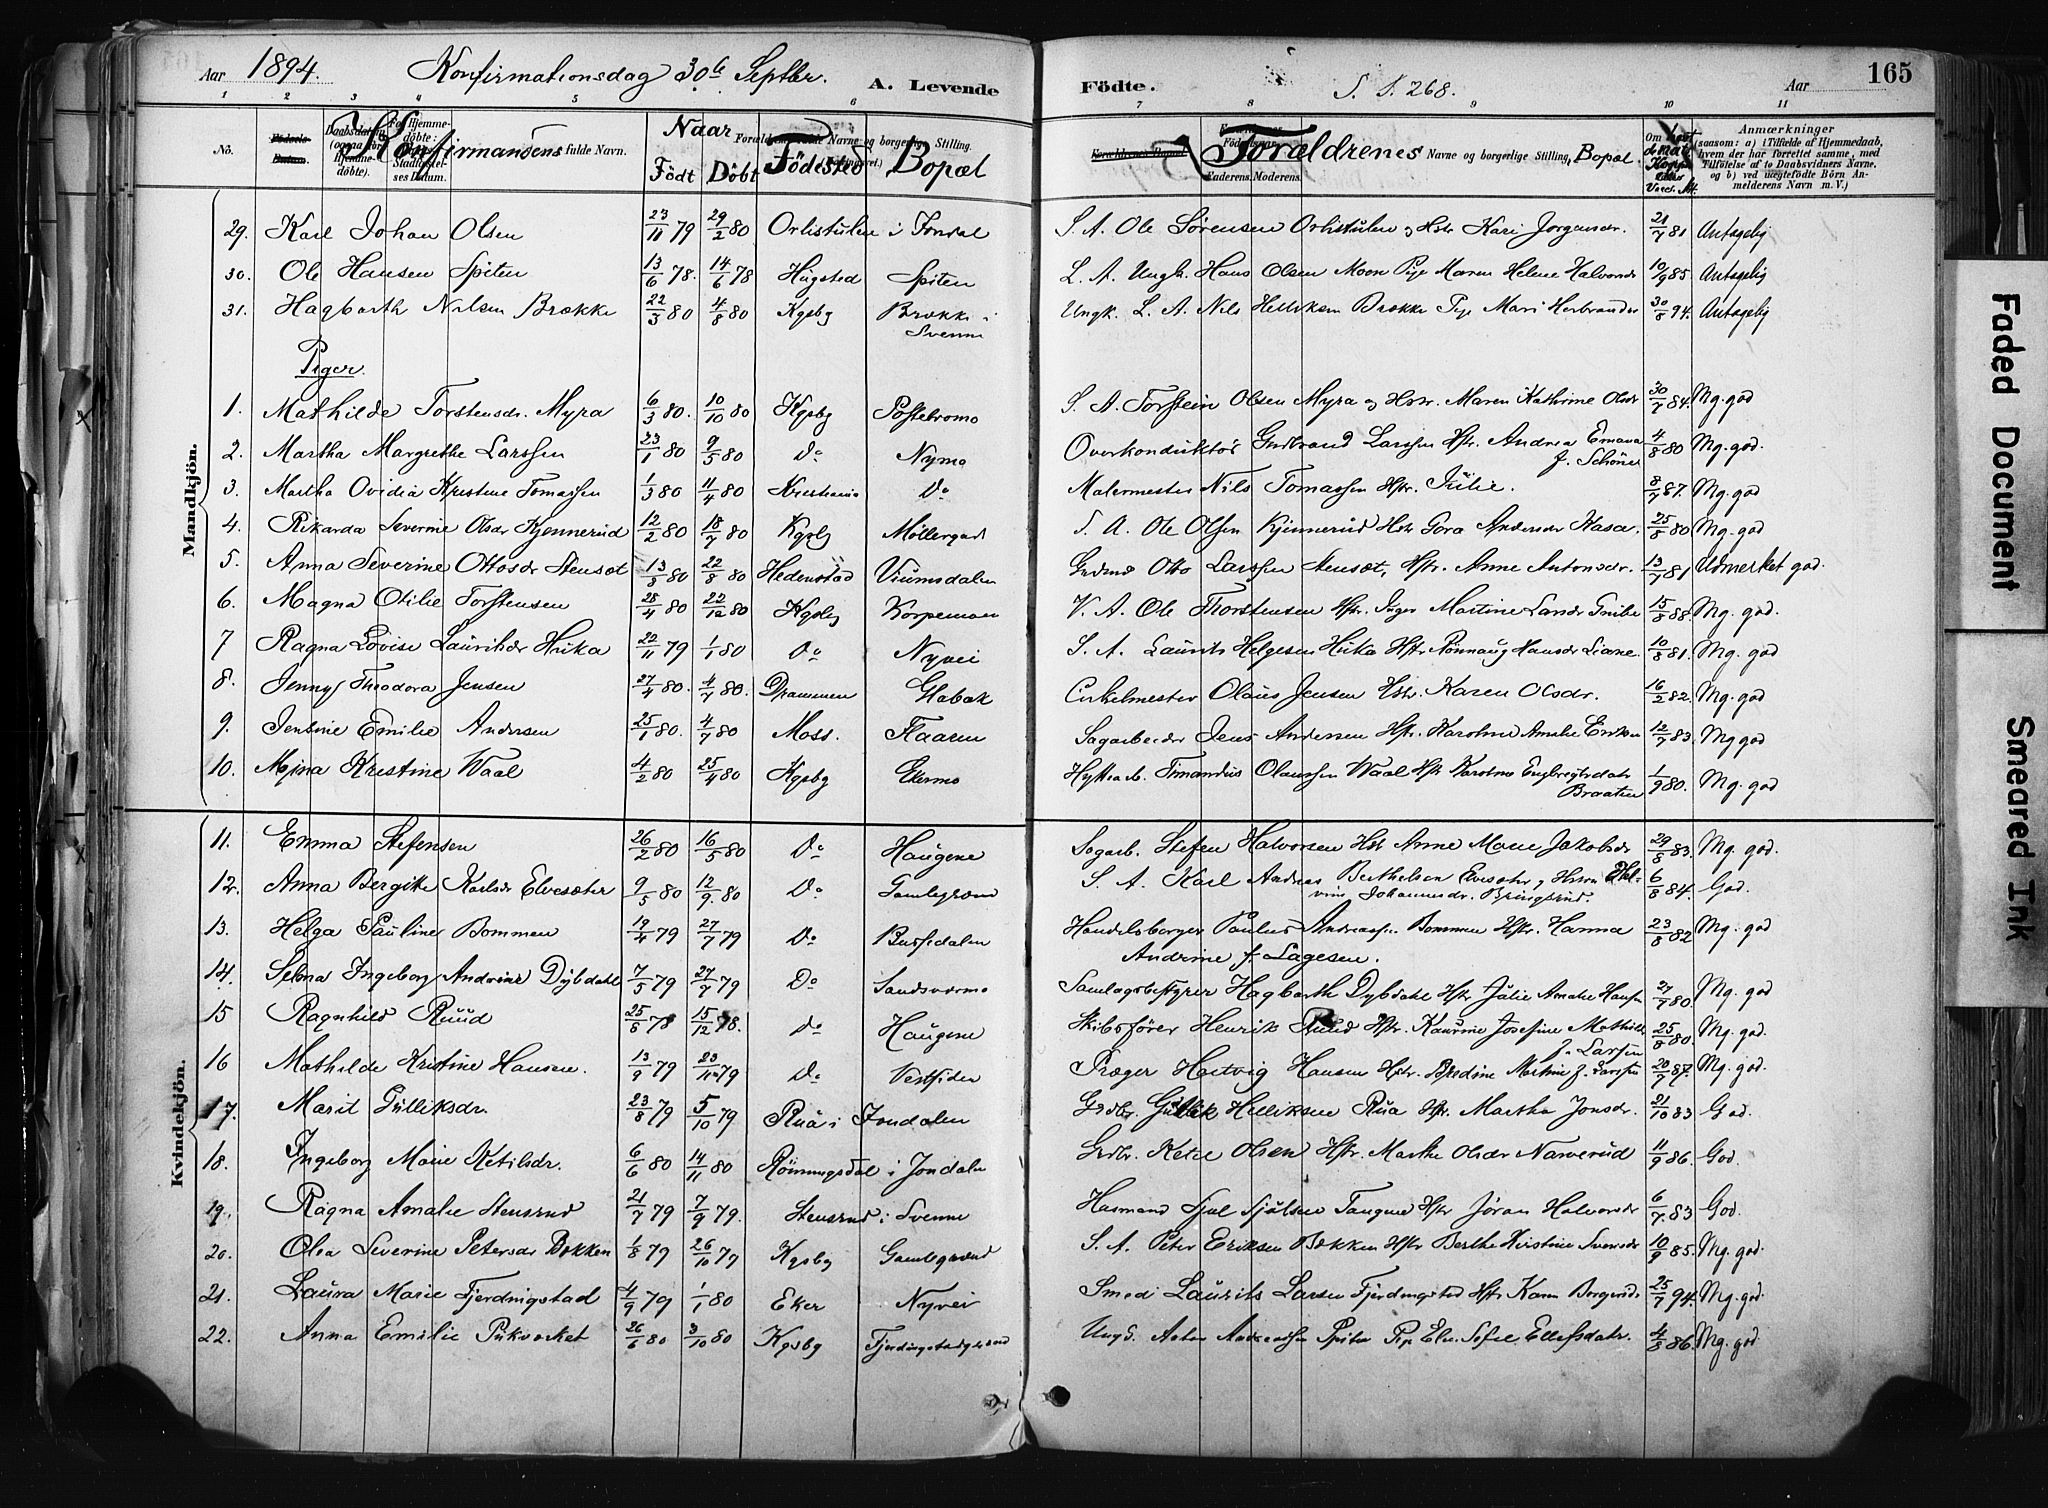 Aar 1894. Konfirmationsdag 30te Septbr. A. Levende Födte. S. S. 268. Aar 165
1 2 3 4 5 6 7 8 9 10 11
No. Konfirmandens fulde Navn. Naar Födt Döbt Födested Bopæl Forældrenes Navne og borgerlige Stilling, Bopæl. Anmærkninger
(saasom: a) i Tilfælde af Hjemmedaab,
hvem der har forrettet samme, med
Tilföielse af to Daabsvidners Navne.
og b) ved uægtefödte Börn An-
melderens Navn m. V.)
Mandkjön.
29. Karl Johan Olsen 23/11 79 29/2 80 Orlistulen i Jondal S. A. Ole Sørensen Orlistulen og Hstr Kari Jørgensdr. 21/7 81 Antagelig
30. Ole Hansen Spiten 13/6 78. 14/6 78 Hugsted Spiten L. A. Ungk. Hans Olsen Moen Pige Maren Helene Halvorsdr 10/9 85 Antagelig
31. Hagbarth Nilsen Brække 22/3 80 4/8 80 Kgsby Brække i Ungk. L. A. Nils Helliksen Brække Pige Mari Herbrandsdr 30/8 94. Antagelig
Svenne
Piger.
1. Mathilde Torstensdr. Myra 6/3 80. 10/10 80 Kgsby Postebromo S. A. Torstein Olsen Myra og Hstr. Maren Kathrine Olsdr 30/7 84. Mg. god
2. Martha Margrethe Larssen 23/1 80 9/5 80 Do Nymo Overkonduktör Gudbrand Larssen Hstr. Andrea Emana 4/8 80 Mg. god.
f. Schöner
3. Martha Ovidia Kristine Tomassen 1/3 80 11/4 80 Kristiania Do Malermester Nils Tomassen Hstr. Julie. 8/7 87. Mg. god
4. Rikarda Severine Olsdr Kjennerud 12/2 80 18/7 80 Kgsby Møllergad S. A. Ole Olsen Kjennerud Hstr Gora Andersdr Hasa. 25/8 80 Mg. god
5. Anna Severine Ottosdr Stensæt 13/3 80 22/8 80 Hedenstad Viumsdalen Grdmd Otto Larssen Stensæt, Hstr. Anne Antonsdr. 13/7 81 Udmerket god.
6. Magna Otilie Torstensen 28/4 80 22/12 80 Kgsby Korpemoen V. A. Ole Thorstensen Hstr. Inger Martine Larsdr Gribe 15/8 88. Mg. god.
7 Ragna Lovise Lauritsdr Hvika 22/11 79 1/1 80 Do Nyvei S. A. Laurits Helgesen Hvika Hstr Rønnaug Hansdr Liane. 10/8 81. Mg. god
8. Jenny Theodora Jensen 27/4 80. 4/7 80. Drammen Glabak Cirkelmester Olaus Jensen Hstr. Karen Olsdr. 16/2 82. Mg. god
9. Jensine Emilie Andersen 25/1 80. 4/7 80 Moss. Flaaren Sagarbeider Jens Andersen Hstr. Karoline Amalie Eriksen 12/7 83. Mg god
10. Mina Kristine Waal 4/2 80 25/4 80 Kgsby Ekermo Hyttearb. Timandus Olaussen Waal Hstr Karoline Engbregtsdatr 1/9 80. Mg. god
Braaten
Kvindekjön.
11. Emma Stefensen 26/2 80 16/5 80 Do Haugene Sagarb. Stefen Halvorsen Hstr Anne Marie Jakobsdr 29/8 83. Mg. god.
12. Anna Bergitte Karlsdr Elvesæter 9/5 80 12/9. 80 Do Gamlegrænd S. A. Karl Andreas Berthelsen Elvesæter, Hstru Hel- 6/8 84. God.
vine Johannesdr. Bringsrud.
13. Helga Pauline Bommen 19/4 79 27/7 79 Do Bussedalen Handelsborger Paulus Andreassen Bommen Hstr. Hanna 23/8 82 Mg. god
Andrine f. Lagesen.
14. Selma Ingeborg Andrine Dybdahl 7/5 79 27/7 79 Do Sandsværmo Samlagsbestyrer Hagbarth Dybdahl Hstr Julie Amalie Hansen 27/7 80. Mg. god
15 Ragnhild Ruud 25/8 78 15/12 78. Do Haugene Skibsfører Henrik Ruud Hstr. Laurine Josefine Mathilde 25/8 80 Mg. god.
f. Larsen
16 Mathilde Kristine Hansen. 13/9 79 23/11 79 Do Vestsiden Præger Hartvig Hansen Hstr. Bredine Martine f. Larsen 20/7 87. Mg. god.
17. Marit Gulliksdr. 23/8 79 5/10 79 Rua i Jondalen Grdbr. Gullik Helliksen Rua Hstr. Martha Jonsdr. 21/10 83 God.
18. Ingeborg Marie Ketilsdr. 6/6 80 14/11 80 Rönningsdal i Jondalen Grdbr. Ketil Olsen Hstr. Marthe Olsdr Narverud 11/9 86. God.
19. Ragna Amalie Stensrud 21/7 79 7/9 79. Stensrud i Svenne Husmand Sjul Sjulsen Tangene Hstr Jøran Halvorsdr 6/7. 83 God.
20. Olea Severine Petersdr Bækken 1/8 79 26/10 79 Kgsby Gamlegrænd S. A. Peter Eriksen Bækken Hstr Berthe Kirstine Svensdr 10/9 85. Mg. god.
21. Laura Marie Fjerdingstad 4/9 79 1/1 80 Eker Nyvei Smed Laurits Larsen Fjerdingstad Hstr Karen Borgersdr 25/7 94. Mg. god.
22. Anna Emilie Pukverket 26/6 80 3/10 80 Kgsby Fjerdingstadgrænd Ungk. Anton Andreassen Spiten Pige Elen Sofie Ellefsdatr. 4/8 86. Mg. god
Faded Document
Smeared Ink